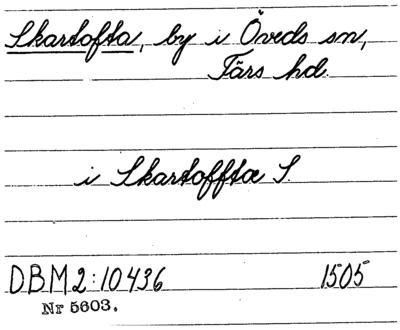 Skartofta, by i Öveds sn,
Färs hd.
i Skartofftæ S.
DBM 2:10436 1505
Nr 5603.